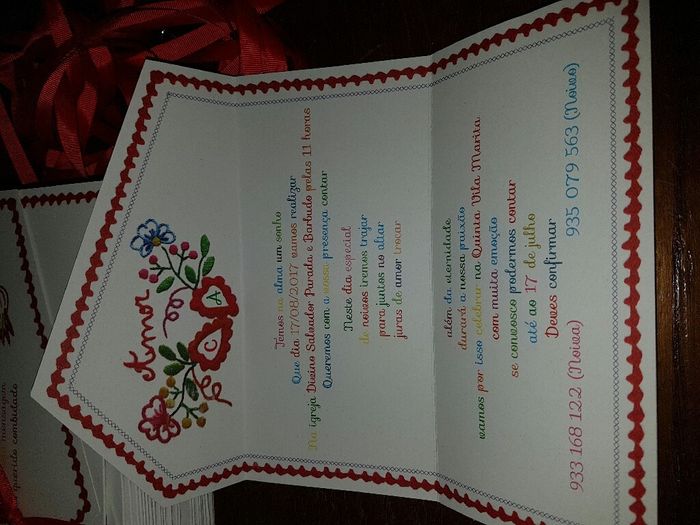 Amor
C A
Temos na alma um sonho
Que dia 17/08/2017 vamos realizar
Na igreja Divino Salvador Parada e Barbudo pelas 11 horas
Queremos com a vossa presença contar
Neste dia especial
de noivos iremos trajar
para juntos no altar
juras de amor trocar
além da eternidade
durará a nossa paixão
vamos por isso celebrar na Quinta Vila Marita
com muita emoção
se convosco podermos contar
até ao 17 de julho
Deves confirmar
933 168 122 (Noiva) 935 079 563 (Noivo)
mensagem
querido contulado